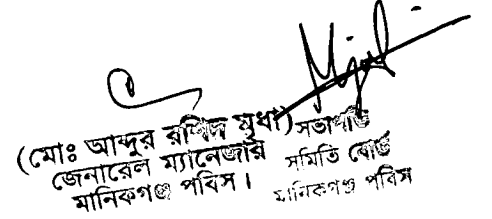 (মোঃ আব্দুর রশিদ মৃধা)
জেনারেল ম্যানেজার
মানিকগঞ্জ পবিস।
সভাপতি
সমিতি বোর্ড
মানিকগঞ্জ পবিস